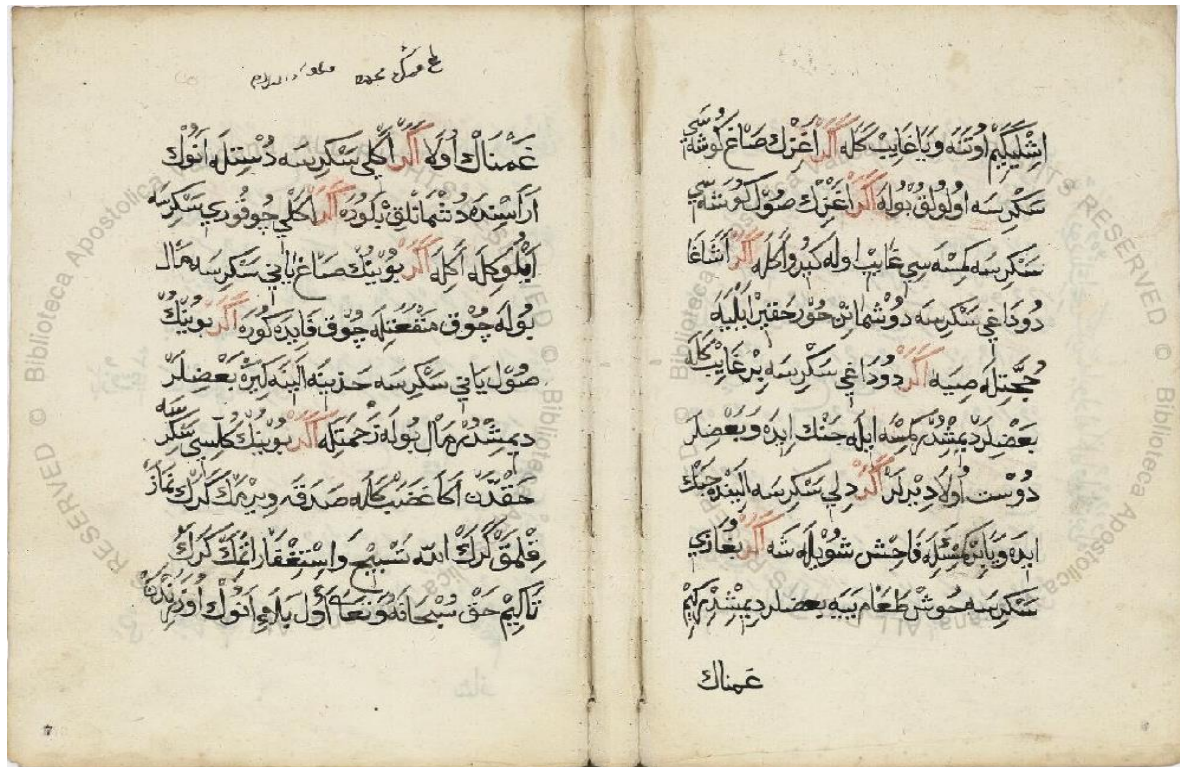 اِشْلَيَكِيم اُوتَنَه وَيَا غَايِبْ كَلَه اَكَرْ اَغْزِكْ صَاغْ كُوشَه سِي
سَكْرِسَه اُولُولُقْ بُولَه اَكَرْ اَغْزِكْ صُولْ كُوشَه سِي
سَكْرِسَه كِمْسَه سِي غَايِب اوله كيرو كله اَكَرْ اَشَاغَا
دُودَاغِي سَكْرِسَه دُوشْمَانِنْ خُورْ حَقِيرْ ايليه
حُجَّتِلَه صِيَه اَكَرْ دُودَاغِي سَكْرِسَه بِرْ غَايِبْ كَلَه
بَعْضِلَرْ دِيمِشْدُرْ كمسه ايله جَنْك ايده وَبَعْضِلَر
دُوسْت اُولَا دِيرلَرْ اَكَرْ دِلِي سَكْرِسَه الينده جنك
ايده وَيَا بر كمسه ايله فَاحِش سُويله شه اَكَرْ بُغَازِي
سَكْرِسَه خُوشْ طَعَام يِيَه بعضلر دِيمِشْدُرْ كِيم
غمناك
غَمْنَاكْ اُولَا اَكَرْ اَكْلِي سَكْرِسَه دُسْتِلَه اَنُوكْ
اَرَاسِنْدَه دُشْمَانْلِقْ بلوره اَكَرْ اكلي چوقوري سَكْرِسَه
ايلوكله اكله اَكَرْ بُويْنِكْ صَاغْ يَانِي سَكْرِسَه مَالْ
بُولَه چُوقْ مَنْفَعَتِلَه چُوقْ فَايِدَه كُورَه اَكَرْ بُوينِكْ
صُولْ يَانِي سَكْرِسَه الينه بَعْضِلَرْ
دِيمِشْدُرْ مَالْ بُولَه زَحْمَتِلَه اَكَرْ بُوينِكْ كَلَّسِي سَكْرِسَه
حَقْدَنْ اَكَا غَضَبْ كَلَه صَدَقَه وِيرمَك كَرَكْ نَمَازْ
قِلْمَقْ كَرَكْ اللّه تَسْبِيح وَاِسْتِغْفَار اِتْمَكْ كَرَكْ
تَا كِيمْ حَقْ سُبْحَانَهُ وَتَعَالَى اُولْ بَلَاءِ اَنُوكْ اُوزَرِنْدَنْ